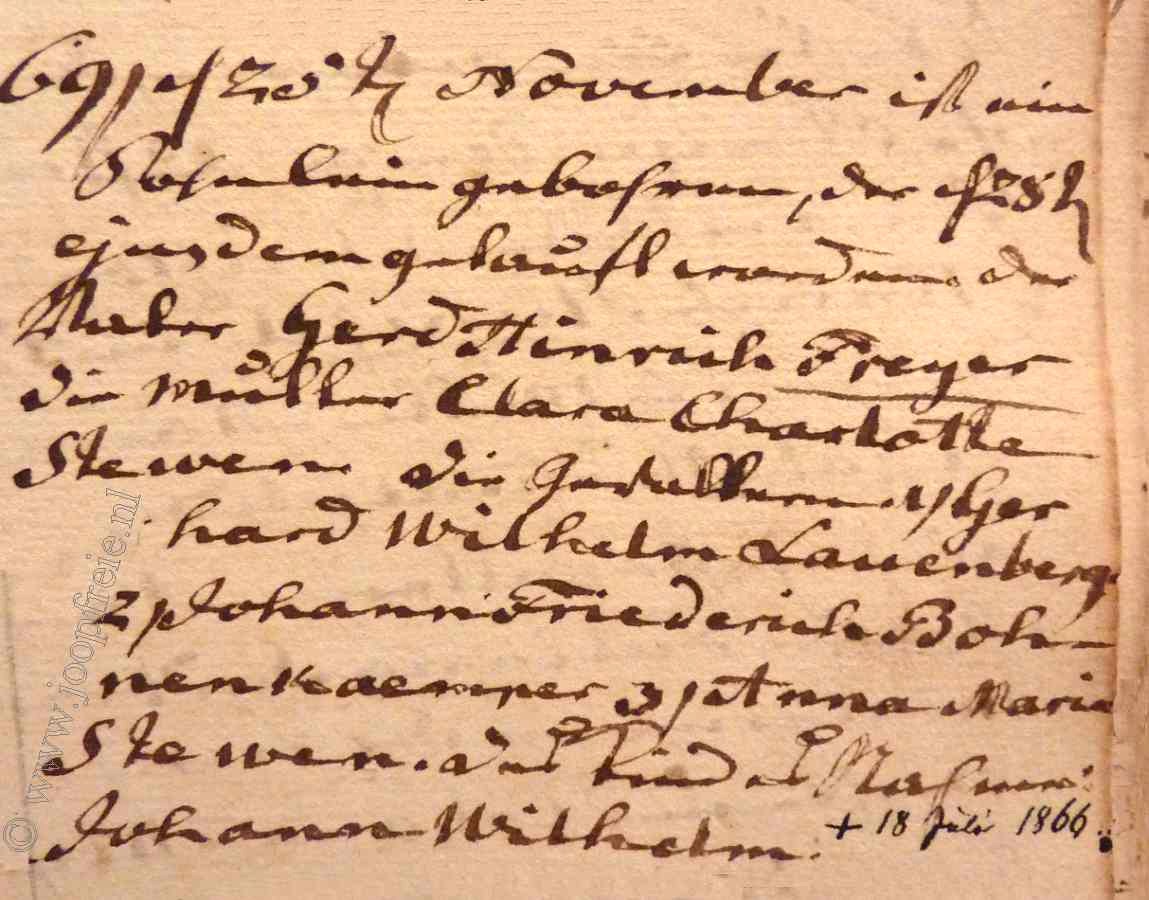 69) d 25t November ist ein
Sohnlein gebohren, der d 28t
ejusdem getauft worden. der
Vater Gerd Hinrich Freyer
die Mutter Clara Charlotte
Stewen. die Gevattern. 1) Ger
hard Wilhelm Lauenberg
2) Johann Friederich Boh-
nenkaemper 3) Anna Maria
Stewen. des Kindes Nahme:
Johann Wilhelm.
+ 18 Juli 1866.
© www.joopfreie.nl